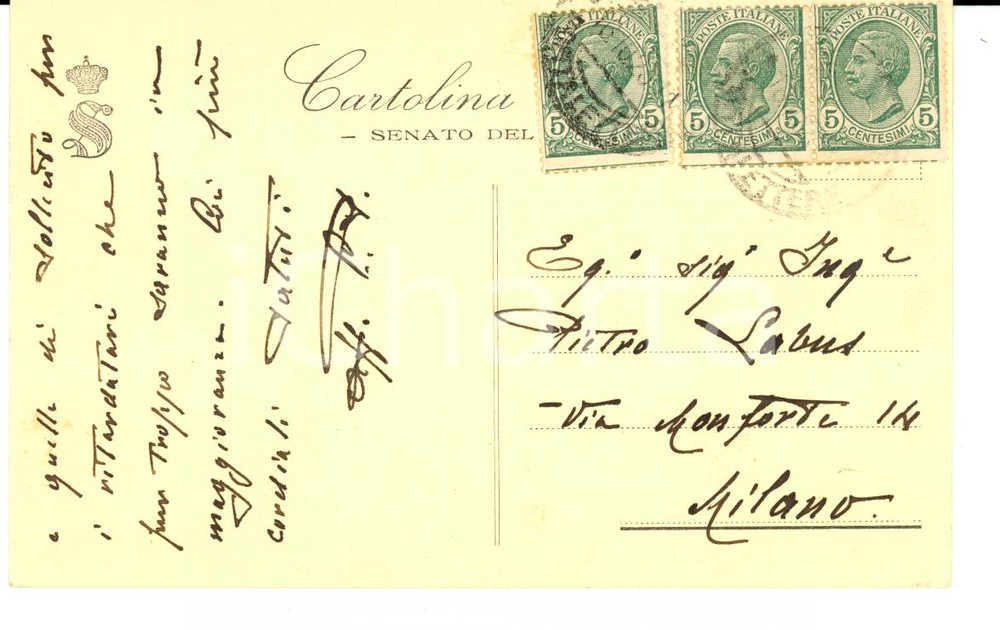 e quelle di sollecito per
i ritardatari che
pur troppo saranno in
maggioranza. Coi più
cordiali saluti
Cartolina
— SENATO DEL
POSTE ITALIANE
5 CENTESIMI 5
POSTE ITALIANE
5 CENTESIMI 5
POSTE ITALIANE
5 CENTESIMI 5
LETTERE
Eg.° sig.r Ing.e
Pietro Labus
Via Monforte 14
Milano.
iCharta